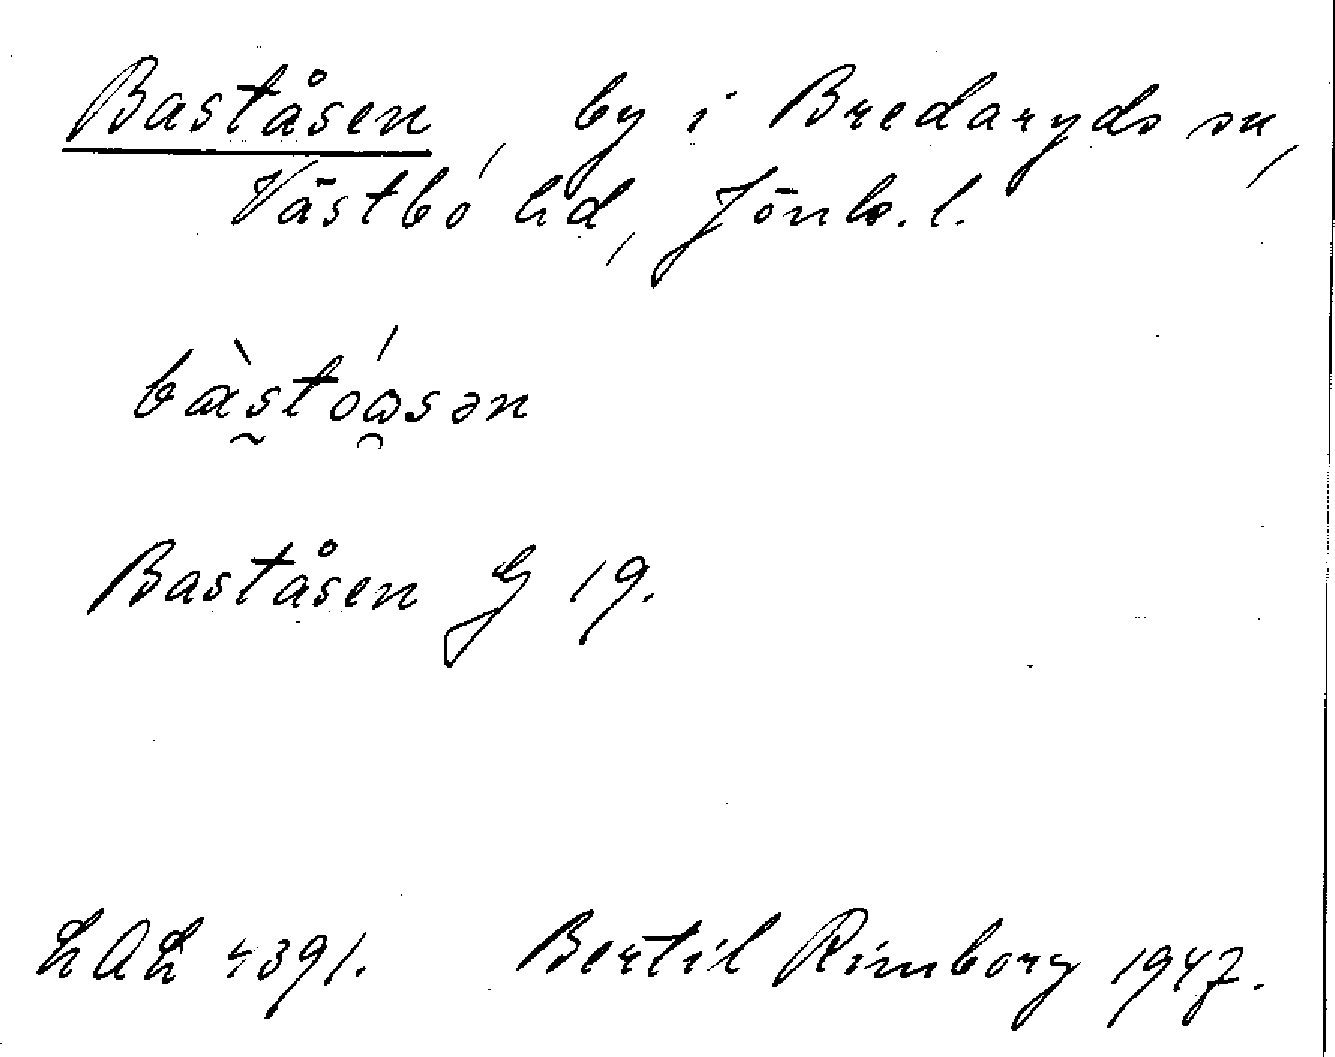 Baståsen, by i Bredaryds sn,
Västbo hd, Jönk. l.
bàstóasən
Baståsen G 19.
LAL 4391. Bertil Rimborg 1947.